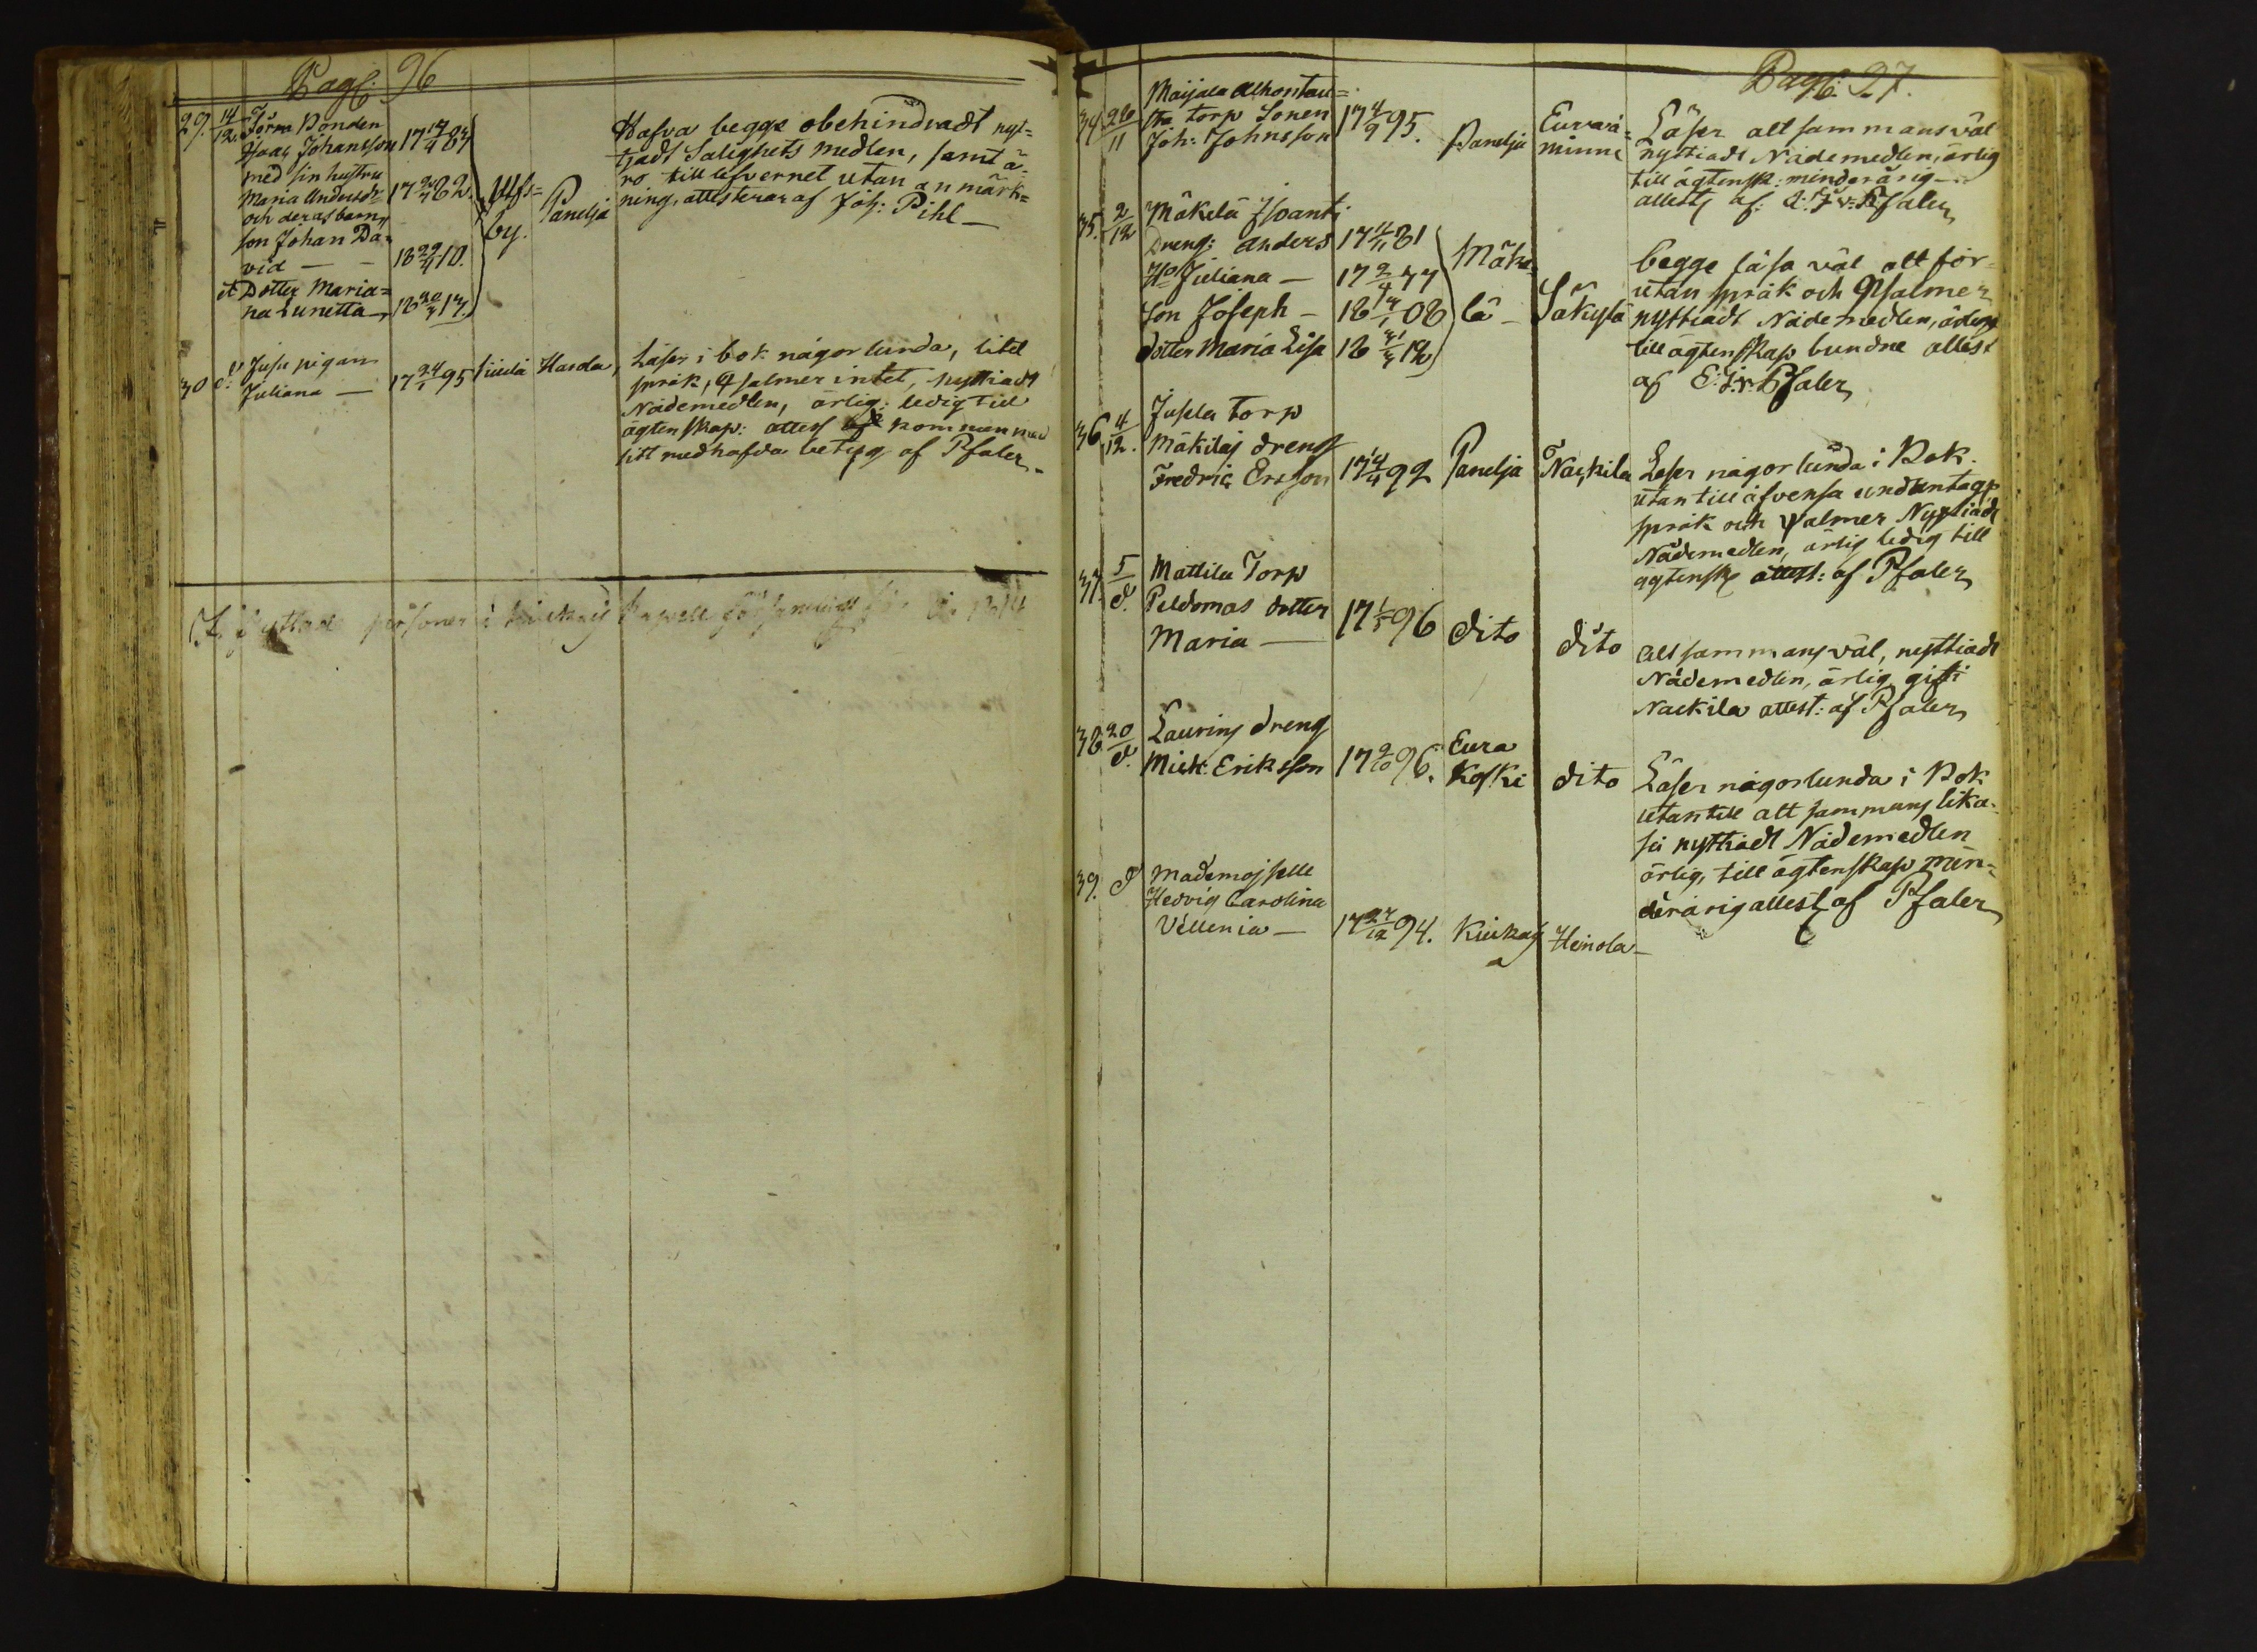 Pag: 96
29. 14/12. Törm Bonden
Isaac Johansson 17 17/4 83
med sin hustru
Maria Andersdr 17 24/7 82.
och deras barn,
son Johan Da=
vid — 18 29/4 10.
et Dotter Maria=
na Lunetta — 18 20/7 13.
Ulfs=
by.
Panelja
Hafva begge obehindradt nyt=
tjadt Salighets medlen, samt ä=
ro till lefvernet utan anmärk=
ning, attesterar af Joh: Pihl —
30 d:o Jusu pigan
Juliana — 17 24/1 95
Harola,
Läser i bok någorlunda, litet
språk, Psalmer intet, nyttiadt
Nådemedlen, ärlig: ledig till
ägtenskap: attest kommen med
sitt medhafda betyg af Pfaler —
Pag: 97.
34. 26/11 Maijala Alhontau=
sta torp Sonen
Joh: Johnsson 17 4/9 95.
Panelja
Euraå=
minne
Läser alt sammans väl
nyttiadt Nådemedlen, ärlig
till ägtensk: minderårig —
attest af: Pfaler
35. 2/12 Mäkilä
Dreng: Anders 17 4/11 81
H:o Juliana — 17 2/4 77
Son Joseph — 18 13/1 08
dotter Maria Lisa 18 31/3 12
Mäki
lä —
Säkylä
begge läsa väl alt för=
utan språk och Psalmer
nyttiadt Nådemedlen,
till ägtenskap bundne attest
af Pfaler
36. 4/12. Jusela torp
Mäkiläs dreng
Fredric Ersson 17 14/4 92
Panelja
Nackila
Läser någorlunda i Bok.
utantill äfvenså undantags
språk och Psalmer Nyttiadt
Nådemedlen, ärlig ledig till
ägtensk attest: af Pfaler
37. 5/d. Mattila Torp
Peldomas dotter
Maria — 17 1/5 96
dito
dito
Alt sammans väl, nyttiadt
Nådemedlen, ärlig gift i
Nackila attest: af Pfaler
38 20/d. Laurins dreng
Mich: Eriksson 17 2/10 96.
Eura
Koski
dito
Läser någorlunda i Bok
utantill alt sammans lika=
så nyttiadt Nådemedlen
ärlig, till ägtenskap min=
derårig attest af Pfaler
39. d Mademojselle
Hedvig Carolina
Villenia — 17 27/12 94.
Kiukas
Heinola —